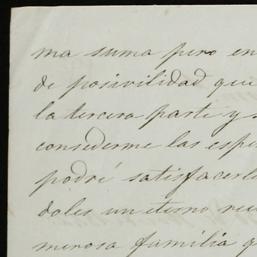 ma suma pero en
de posivilidad que
la tercera parte y s
consederme las espe
podré satisfacerl
doles un eterno rec
merosa familia q